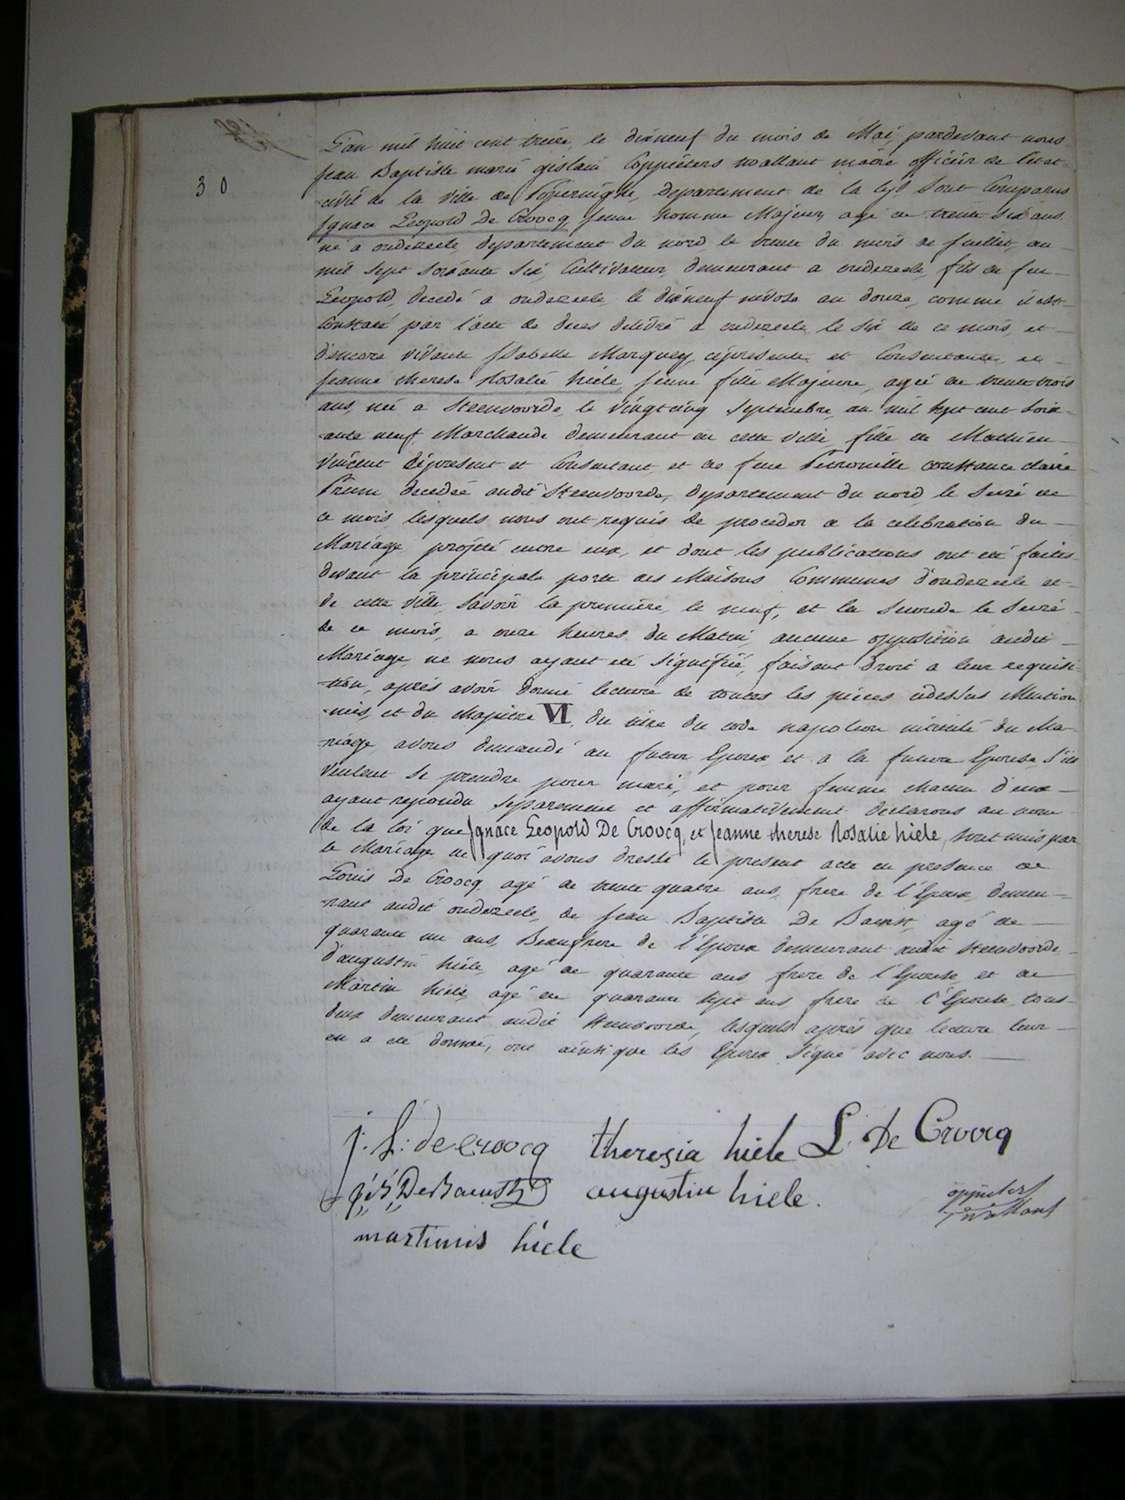 30
L'an mil huit cent treize, le dixneuf du mois de Mai, pardevant nous
jean Baptiste marie gislain Coppieters wallant maire officier de l'état
civil de la ville de Poperinghe, departement de la Lys sont Comparus
Ignace Leopold De Croocq jeune homme Majeur, agé de trente six ans
né a oudezeele, departement du nord le trente du mois de juillet, an
mil sept soixante six, Cultivateur, demeurant a oudezeele, fils de feu
Leopold, decedé a oudezeele, le dixneuf nivose an douze, comme il est
Constaté par l'acte de deces delivré a oudezeele le six de ce mois, et
d'encore vivante Isabelle Marquey, cipresente, et Consentante, et
jeanne therese Rosalie hiele, jeune fille Majeure, agée de trente trois
ans, née a Steenvoorde, le vingtcinq septembre, an mil sept cent soix-
ante neuf Marchande demeurant en cette ville, fille de Mathieu
Vincent cipresent et Consentant et de feue Petronille constance claire
Prum decedée audit Steenvoorde, departement du nord, le seize de
ce mois, lesquels nous ont requis de proceder a la celebration du
Mariage projeté entre eux, et dont les publications ont été faites
devant la principale porte des Maisons Communes d'oudezeele et
de cette ville, savoir la premiere, le neuf, et la seconde le seize
de ce mois, a onze heures du Matin, aucune opposition audit
Mariage ne nous ayant été signifiée, faisant droit a leur requisi-
tion, après avoir donné lecture de toutes les pieces cidessus Mention-
nées, et du chapitre VI du titre du code napoleon intitulé du Ma-
riage avons demandé au futur Epoux et a la future Epouse s'ils
veulent se prendre pour mari, et pour femme chacun d'eux
ayant repondu separement et affirmativement declarons au nom
de la loi que Ignace Leopold De Croocq, et Jeanne therese Rosalie hiele, sont unis par
le Mariage de quoi avons dressé le present acte en presence de
Louis De Croocq agé de trente quatre ans, frere de l'Epoux, demeu-
rant audit oudezeele, de jean Baptiste De Baenst, agé de
quarante un ans, Beaufrere de l'Epoux demeurant audit Steenvoorde,
d'augustin hiele, agé de quarante ans, frere de l'Epouse, et de
Martin hiele, agé de quarante sept ans frere de l'Epouse, tous
deux demeurant audit Steenvoorde, lesquels après que lecture leur
en a été donnée, ont ainsi que les Epoux signé avec nous.
j: L: de croocq theresia hiele L De Croocq
De Baenst augustin hiele.
martinus hiele